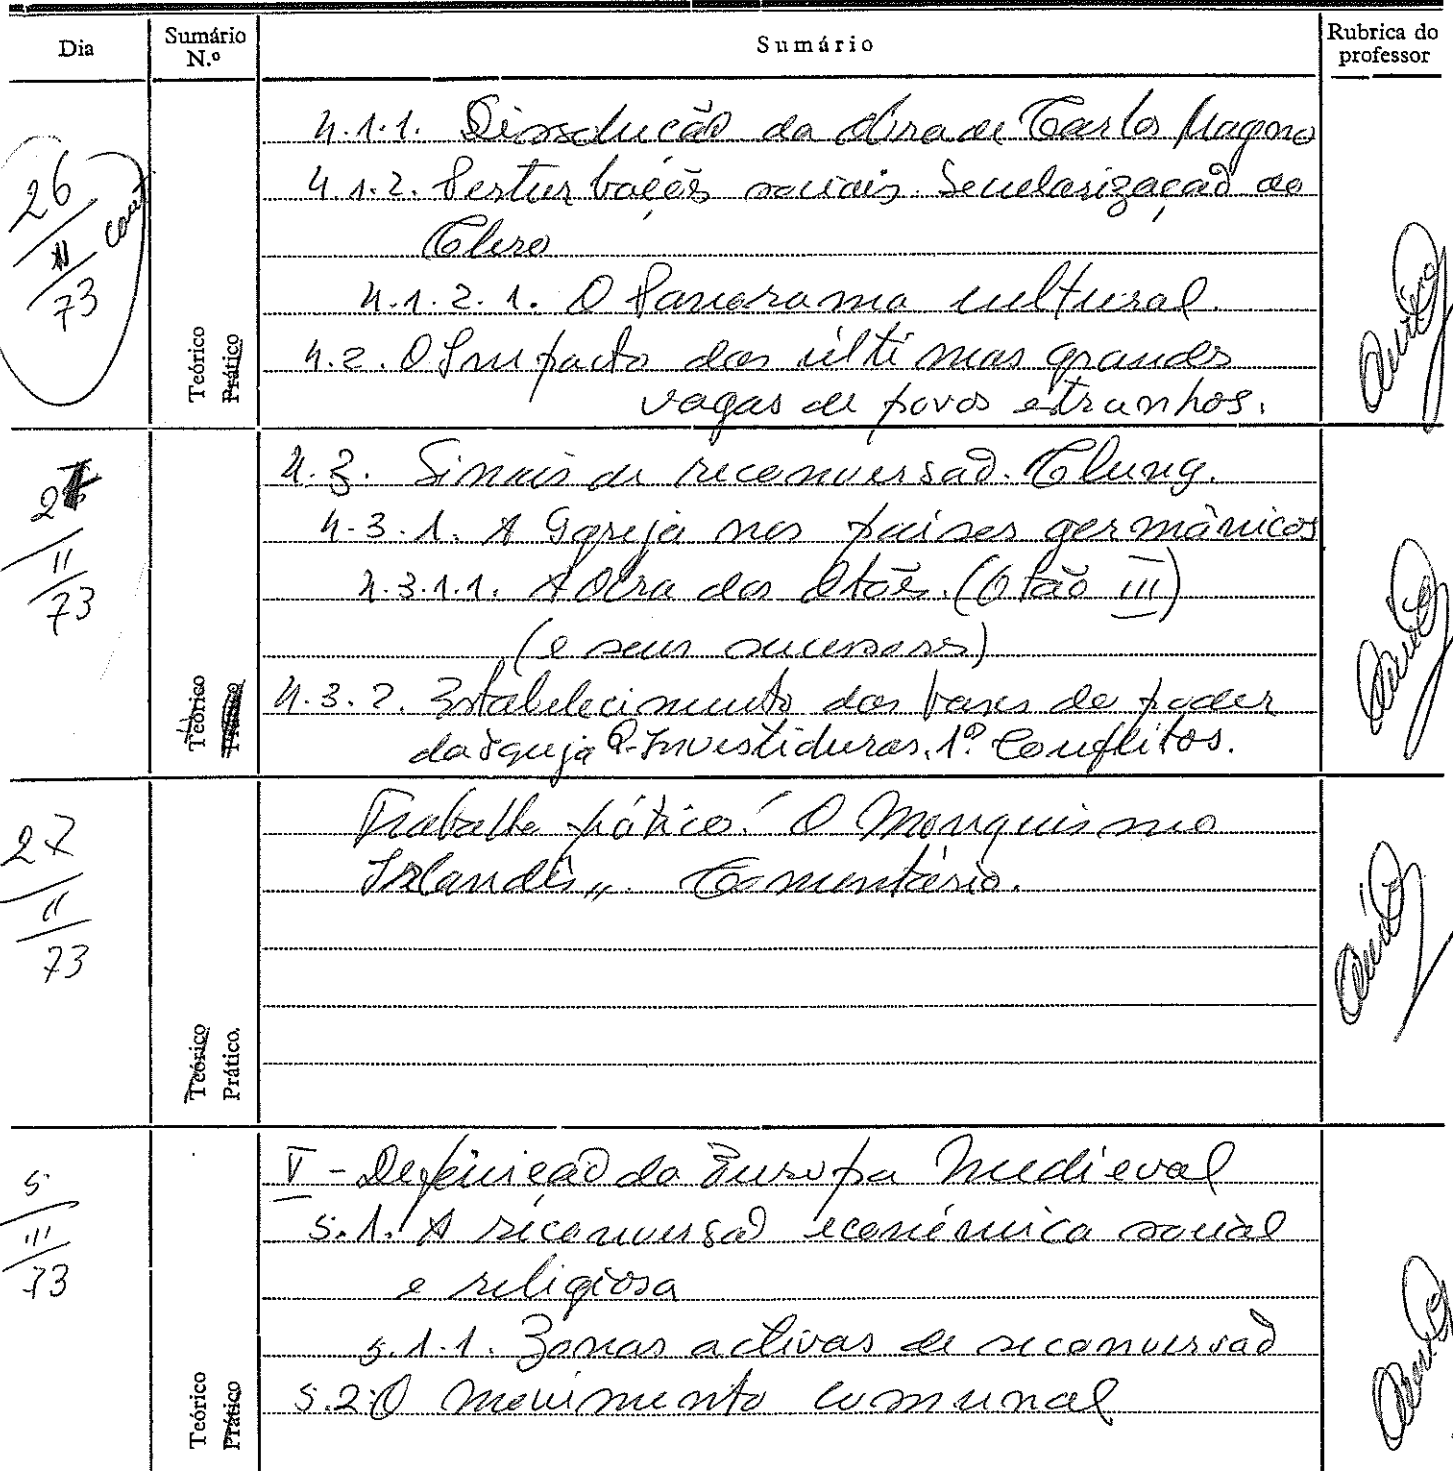 Dia Sumário N.º Sumário Rubrica do professor
26 / II / 73 cont
4.1.1. Dissolução da obra de Carlos Magno
4.1.2. Perturbações sociais. Secularização do
Clero
4.1.2.1. O Panorama cultural.
4.2. O Impacto das últimas grandes
vagas de povos estranhos.
Teórico
Prático
27 / II / 73
4.3. Sinais de reconversão. Cluny.
4.3.1. A Igreja nos países germânicos
4.3.1.1. A Obra dos Otões. (Otão III)
(e seus sucessores)
4.3.2. Estabelecimento das bases do poder
da Igreja Investiduras. 1º Conflitos.
Teórico
Prático
27 / II / 73
Trabalho prático: O Monquismo
Irlandês". Comentário.
Teórico
Prático.
5 / III / 73
V - Definição da Europa Medieval
5.1. A reconversão económica social
e religiosa
5.1.1. Zonas activas de reconversão
5.2. O movimento comunal
Teórico
Prático